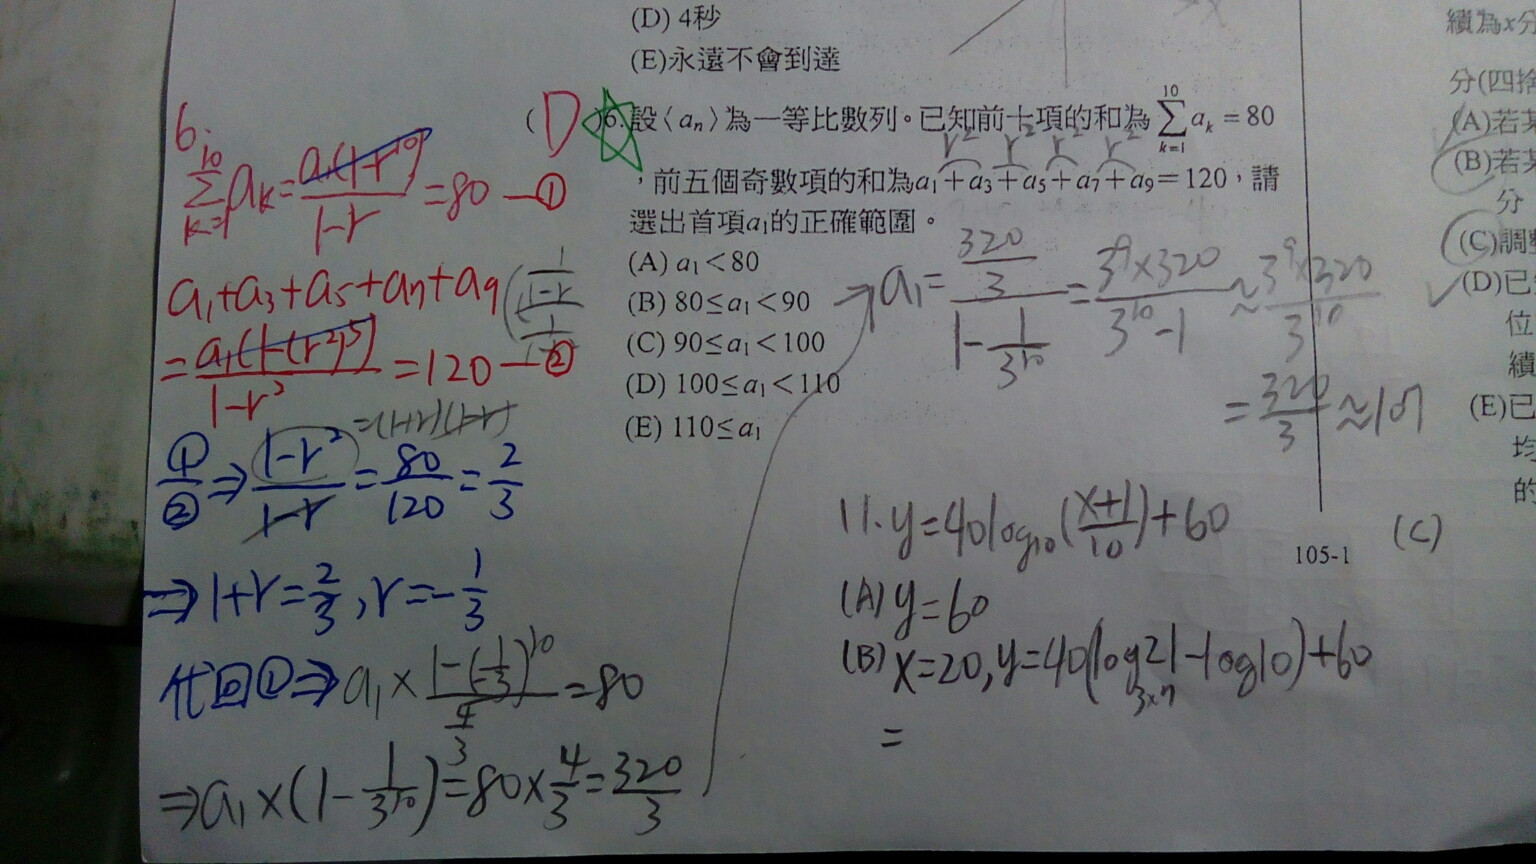 (D) 4秒
(E)永遠不會到達
(D)6.設〈an〉為一等比數列。已知前十項的和為 10∑k=1 ak = 80
r² r² r² r²
，前五個奇數項的和為a1+a3+a5+a7+a9=120，請
選出首項a1的正確範圍。
(A) a1<80
(B) 80≤a1<90
(C) 90≤a1<100
(D) 100≤a1<110
(E) 110≤a1
6.
10∑k=1 ak = a1(1-r^10)/(1-r) = 80 —①
a1+a3+a5+a7+a9
= a1(1-(r²)^5)/(1-r²) = 120 —②
=(1+r)(1-r)
①/② ⇒ (1-r²)/(1-r) = 80/120 = 2/3
⇒ 1+r=2/3, r=-1/3
代回①⇒ a1 × (1-(-1/3)^10)/(4/3) = 80
⇒ a1×(1-1/3^10) = 80×4/3 = 320/3
a1 = (320/3)/(1-1/3^10) = (3^9×320)/(3^10-1) ≈ (3^9×320)/3^10
= 320/3 ≈107
11. y=40log10((x+1)/10)+60
(A) y=60
(B) x=20, y=40(log21-log10)+60
3×7
=
105-1
(C)
績為x分
分(四捨
(A)若某
(B)若某
分
(C)調整
(D)已
位
績
(E)已
均
的